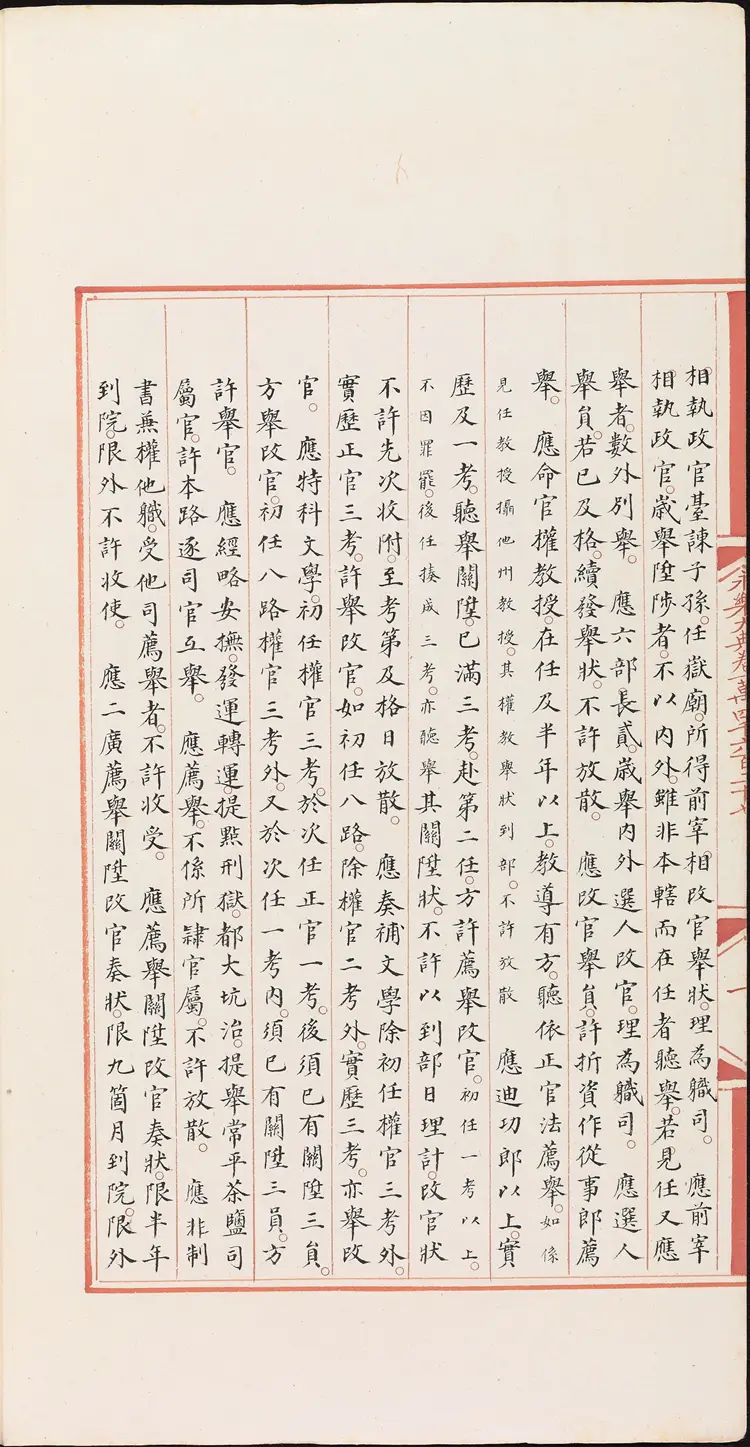 永樂大典卷
相執政官臺諫子孫。任嶽廟。所得前宰相改官舉狀。理為職司。 應前宰
相執政官。歲舉陞陟者。不以內外。雖非本轄而在任者聽舉。若見任又應
舉者。數外別舉。 應六部長貳。歲舉內外選人改官。理為職司。 應選人
舉員。若已及格。續發舉狀。不許放散。 應改官舉員。許折資作從事郎薦
舉。 應命官權教授。在任及半年以上。教導有方。聽依正官法薦舉。如係
見任教授攝他州教授。其權教舉狀到部。不許放散 應迪功郎以上。實
歷及一考。聽舉關陞。已滿三考。赴第二任。方許薦舉改官。初任一考以上。
不因罪罷。後任揍成三考。亦聽舉其關陞狀。不許以到部日理計。改官狀
不許先次收附。至考第及格日放散。 應奏補文學除初任權官三考外。
實歷正官三考。許舉改官。如初任八路。除權官二考外。實歷三考。亦舉改
官。 應特科文學。初任權官三考。於次任正官一考。後須已有關陞三員。
方舉改官。初任八路權官三考外。又於次任一考內。須已有關陞三員。方
許舉官。 應經略安撫。發運轉運。提點刑獄。都大坑冶。提舉常平茶鹽司
屬官。許本路逐司官互舉。 應薦舉。不係所隷官屬。不許放散。 應非制
書兼權他職。受他司薦舉者。不許收受。 應薦舉關陞改官奏狀。限半年
到院。限外不許收使。 應二廣薦舉關陞改官奏狀。限九箇月到院。限外